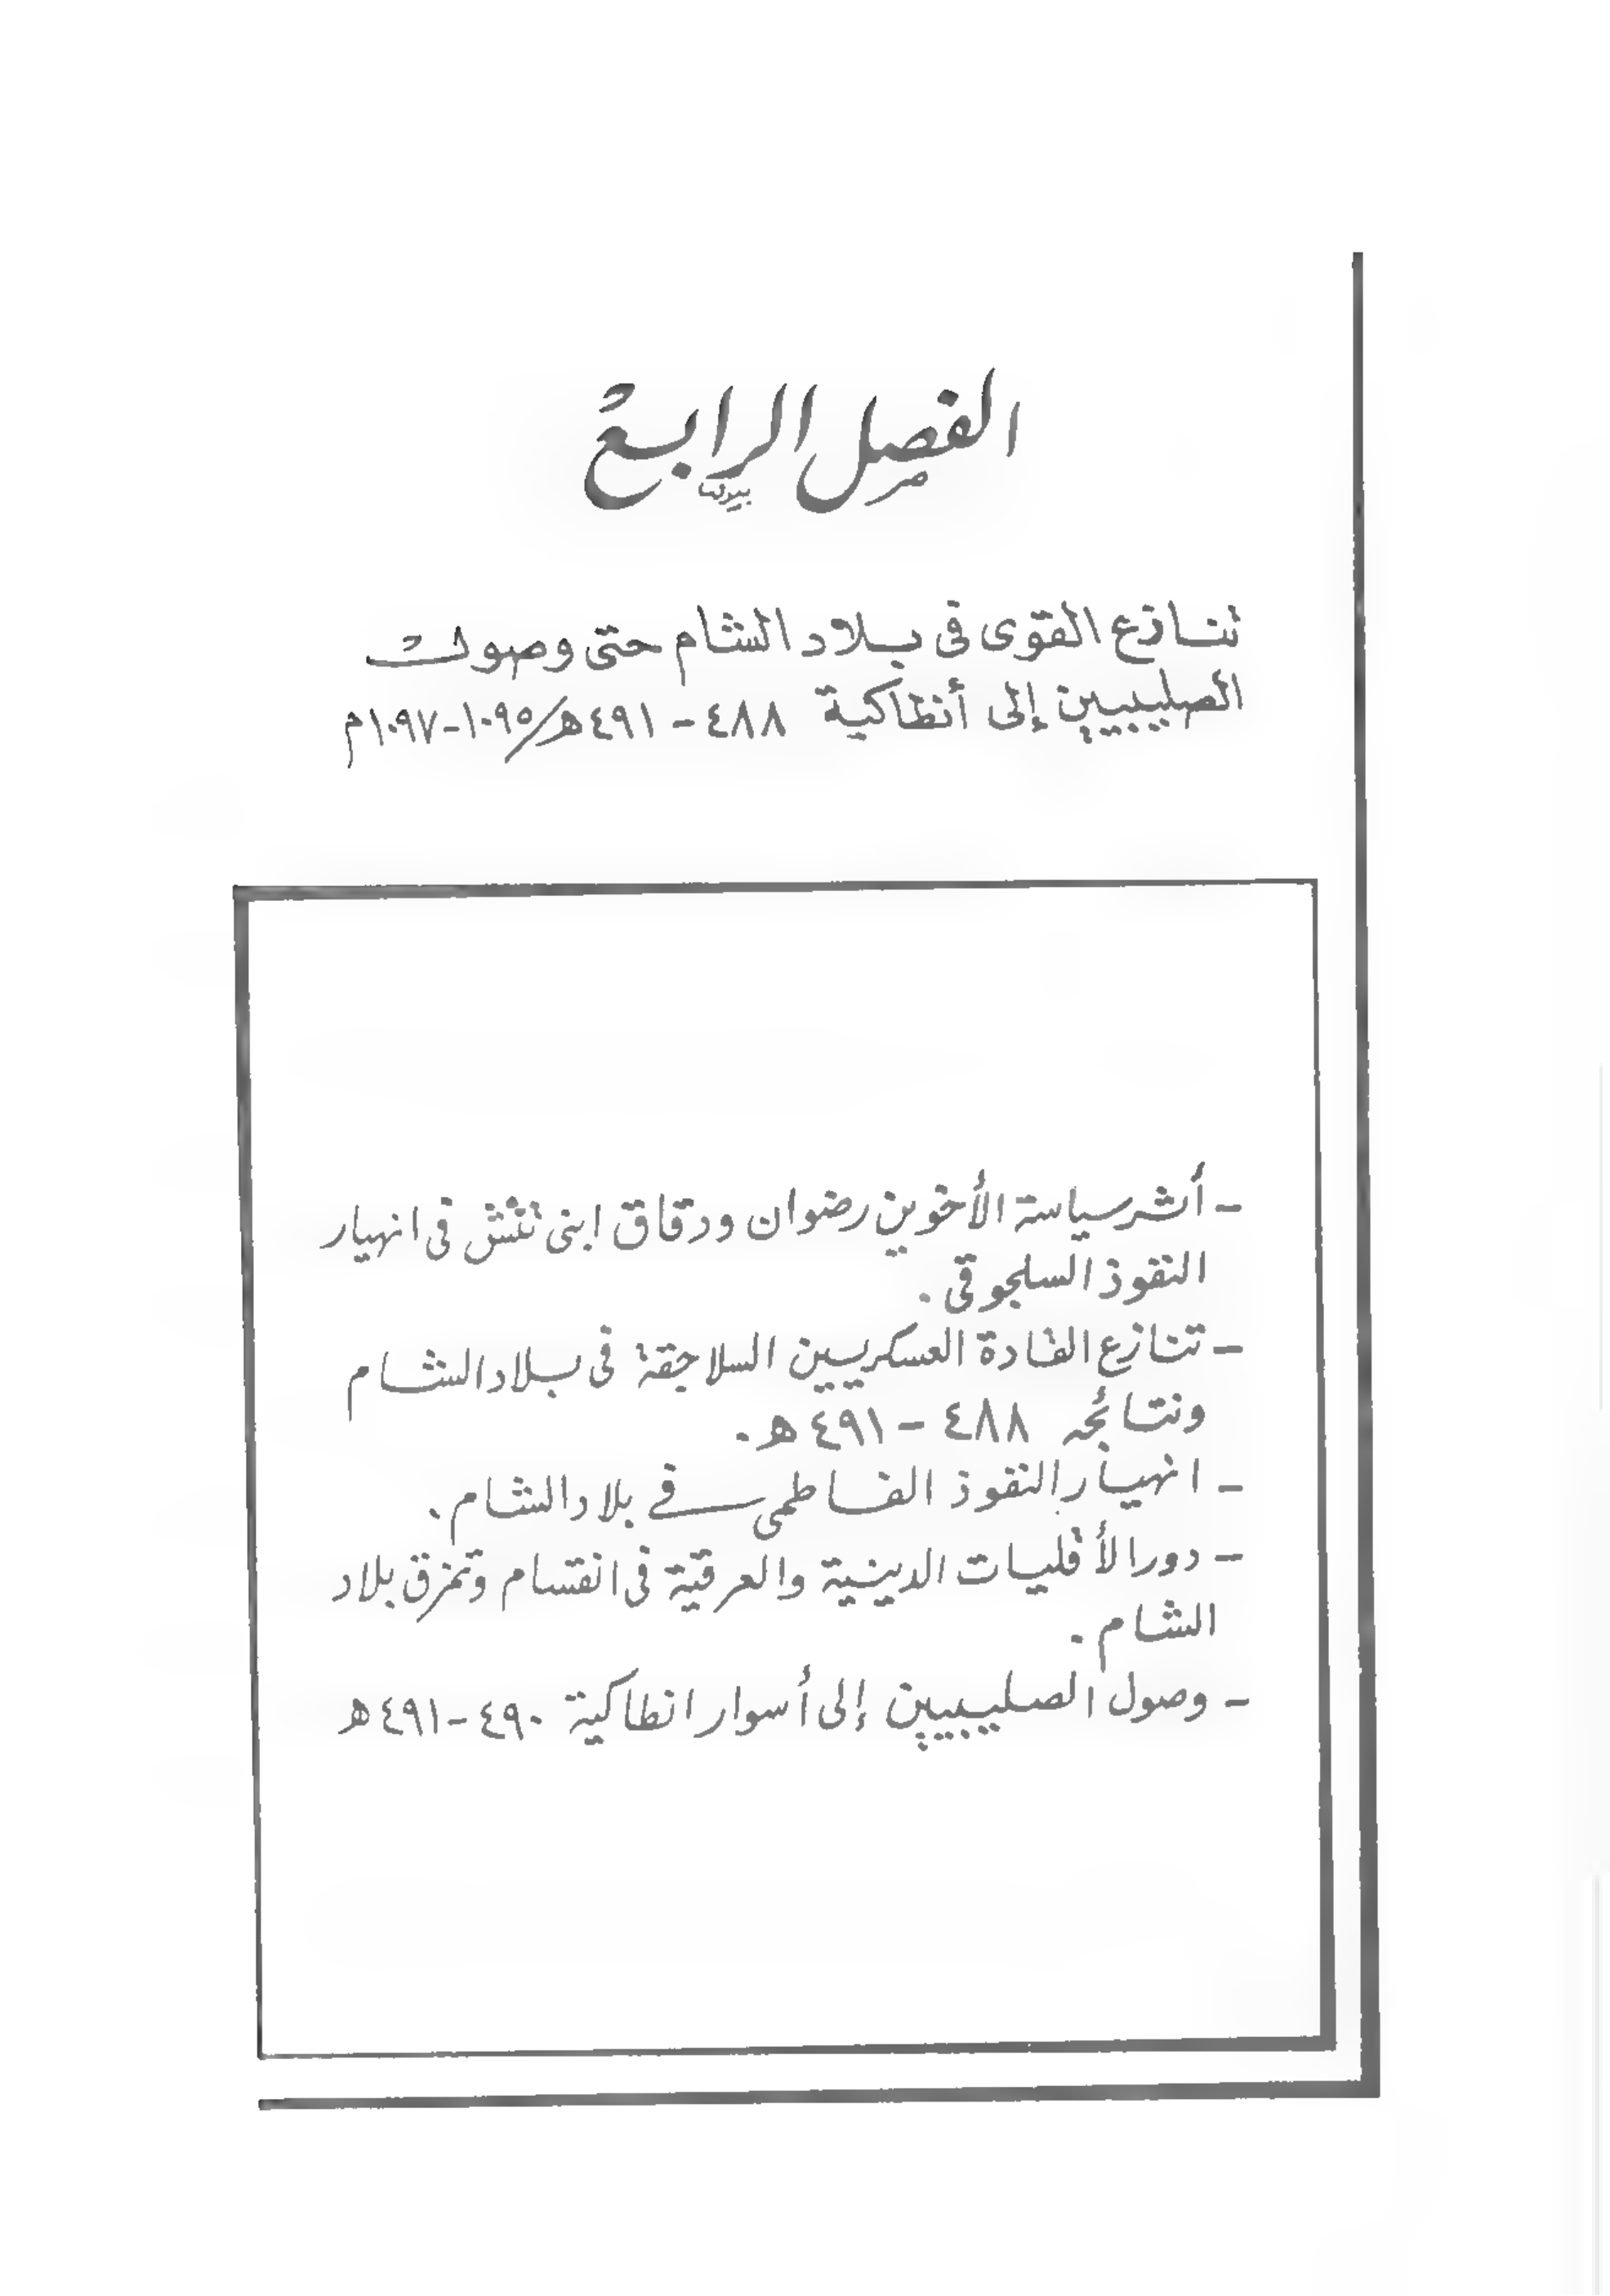 الفصل الرابع
تنازع القوى فى بلاد الشام حتى وصول
الصليبيين إلى أنطاكية ٤٨٨ - ٤٩١ هـ/١٠٩٥-١٠٩٧م
- أثر سياسة الأخوين رضوان ودقاق ابنى تتش فى انهيار
النفوذ السلجوقى .
- تنازع القادة العسكريين السلاجقة فى بلاد الشام
ونتائجه ٤٨٨ - ٤٩١ هـ .
- انهيار النفوذ الفاطمى فى بلاد الشام .
- دور الأقليات الدينية والعرقية فى انقسام وتمزق بلاد
الشام .
- وصول الصليبيين إلى أسوار انطاكية ٤٩٠-٤٩١ هـ